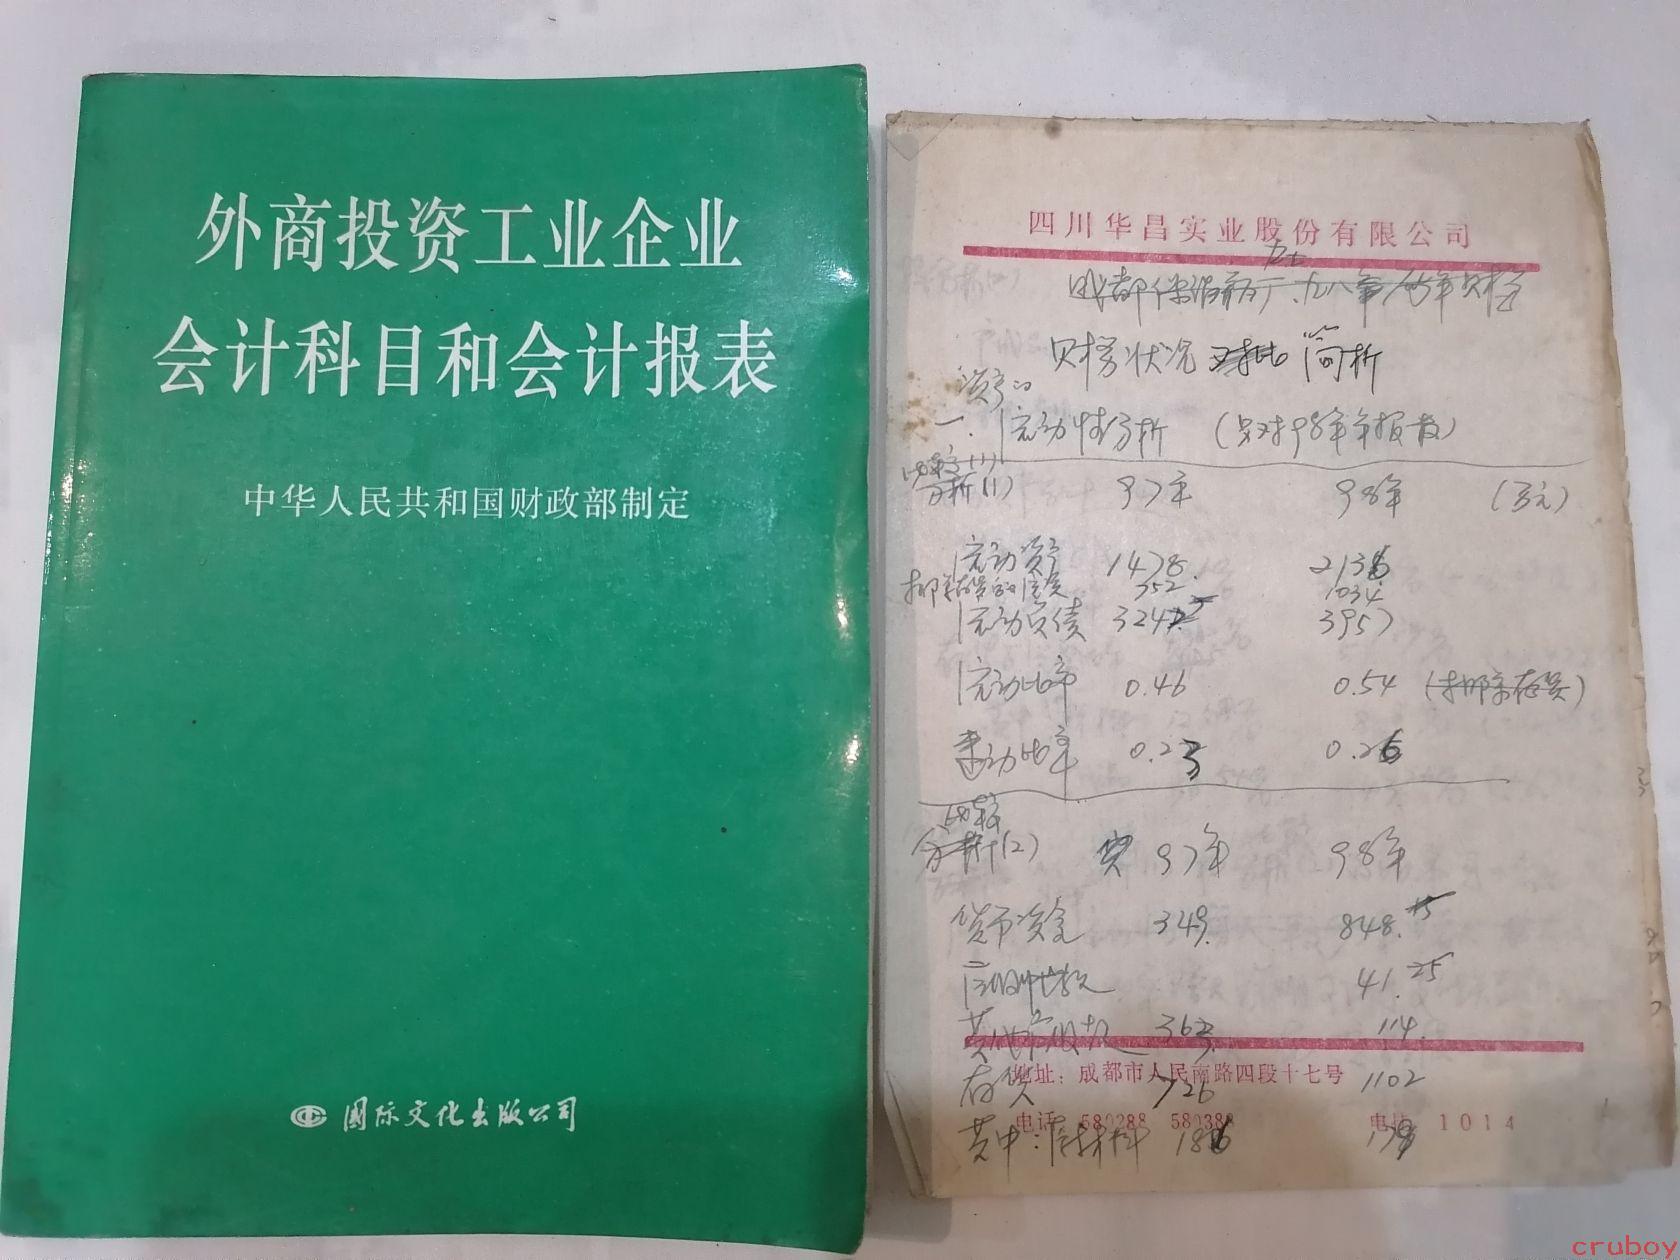 外商投资工业企业
会计科目和会计报表
中华人民共和国财政部制定
国际文化出版公司
四川华昌实业股份有限公司
财务状况 简析
资产的
一、流动性分析 (只对98年年报表)
比较(1)
分析(1) 97年 98年 (万元)
流动资产 1478. 2136
扣除存货的流资 752 1034
流动负债 3245 3957
流动比率 0.46 0.54 (扣除存货)
速动比率 0.23 0.26
比较
分析(2) 97年 98年
货币资金 349. 848.
应收帐款 41.25
其他应收款 363 114.
存货 726 1102
其中:原材料 186
地址:成都市人民南路四段十七号
电话 580288 580388 电挂 1014
cruboy